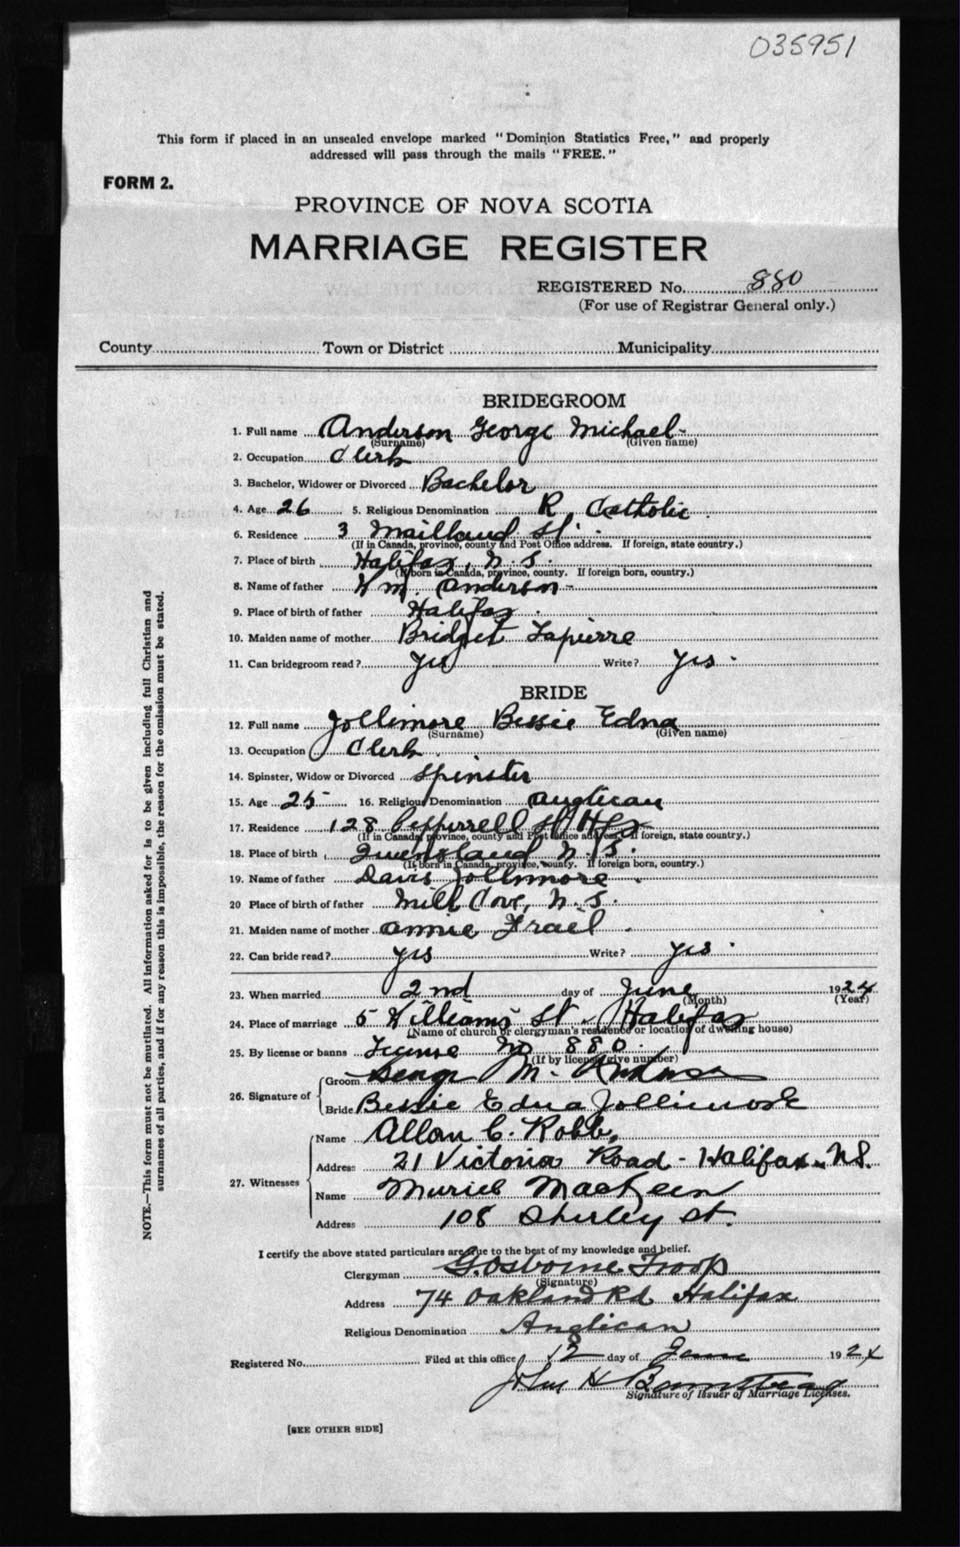 035951
This form if placed in an unsealed envelope marked "Dominion Statistics Free," and properly
addressed will pass through the mails "FREE."
FORM 2.
PROVINCE OF NOVA SCOTIA
MARRIAGE REGISTER
REGISTERED No. 880
(For use of Registrar General only.)
County Town or District Municipality
BRIDEGROOM
1. Full name Anderson George Michael
(Surname) (Given name)
2. Occupation Clerk
3. Bachelor, Widower or Divorced Bachelor
4. Age 26 5. Religious Denomination R. Catholic
6. Residence 3 Maitland St.
(If in Canada, province, county and Post Office address. If foreign, state country.)
7. Place of birth Halifax, N.S.
(If born in Canada, province, county. If foreign born, country.)
8. Name of father Wm. Anderson
9. Place of birth of father Halifax
10. Maiden name of mother Bridget Lapierre
11. Can bridegroom read? Yes Write? Yes
BRIDE
12. Full name Jollimore Bessie Edna
(Surname) (Given name)
13. Occupation Clerk
14. Spinster, Widow or Divorced Spinster
15. Age 25 16. Religious Denomination Anglican
17. Residence 128 Pepperrell St Hfx
(If in Canada, province, county and Post Office address. If foreign, state country.)
18. Place of birth Queensland N.S.
(If born in Canada, province, county. If foreign born, country.)
19. Name of father Davis Jollimore
20 Place of birth of father Mill Cove, N.S.
21. Maiden name of mother Annie Frail
22. Can bride read? Yes Write? Yes
23. When married 2nd day of June 1924
(Month) (Year)
24. Place of marriage 5 Williams St. Halifax
(Name of church or clergyman's residence or location of dwelling house)
25. By license or banns License No 880
(If by license give number)
26. Signature of Groom George M. Anderson
Bride Bessie Edna Jollimore
27. Witnesses Name Allan C. Robb,
Address 21 Victoria Road - Halifax N.S.
Name Muriel MacKeen
Address 108 Shirley St.
I certify the above stated particulars are true to the best of my knowledge and belief.
Clergyman G. Osborne Troop
(Signature)
Address 74 Oakland Rd Halifax
Religious Denomination Anglican
Registered No. Filed at this office day of June 1924
John H
Signature of Issuer of Marriage Licenses.
[SEE OTHER SIDE]
NOTE.—This form must not be mutilated. All information asked for is to be given including full Christian and
surnames of all parties, and if for any reason this is impossible, the reason for the omission must be stated.